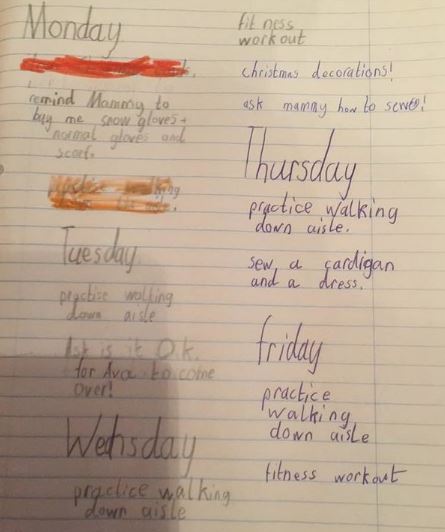 Monday
remind Mammy to
buy me snow gloves +
normal gloves and
scarf.
practice walking
down the aisle.
Tuesday
practise walking
down aisle
Ask is it O.K.
for Ava to come
over!
Wednsday
practice walking
down aisle
fitness
workout
christmas decorations!
ask mammy how to sew!
Thursday
practice walking
down aisle.
sew a cardigan
and a dress.
friday
practice
walking
down aisle
fitness workout